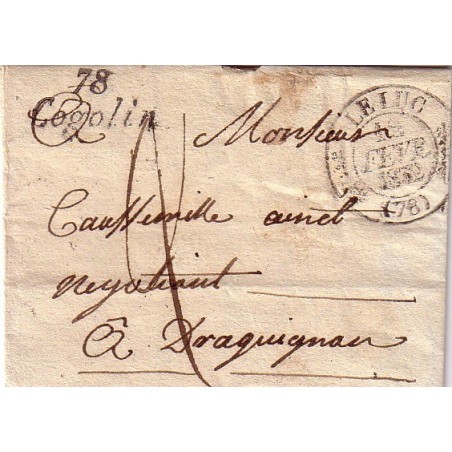 78
Cogolin
LE LUC
FEVR
(78)
A Monsieur
ainet
negotiant
A Draguignan